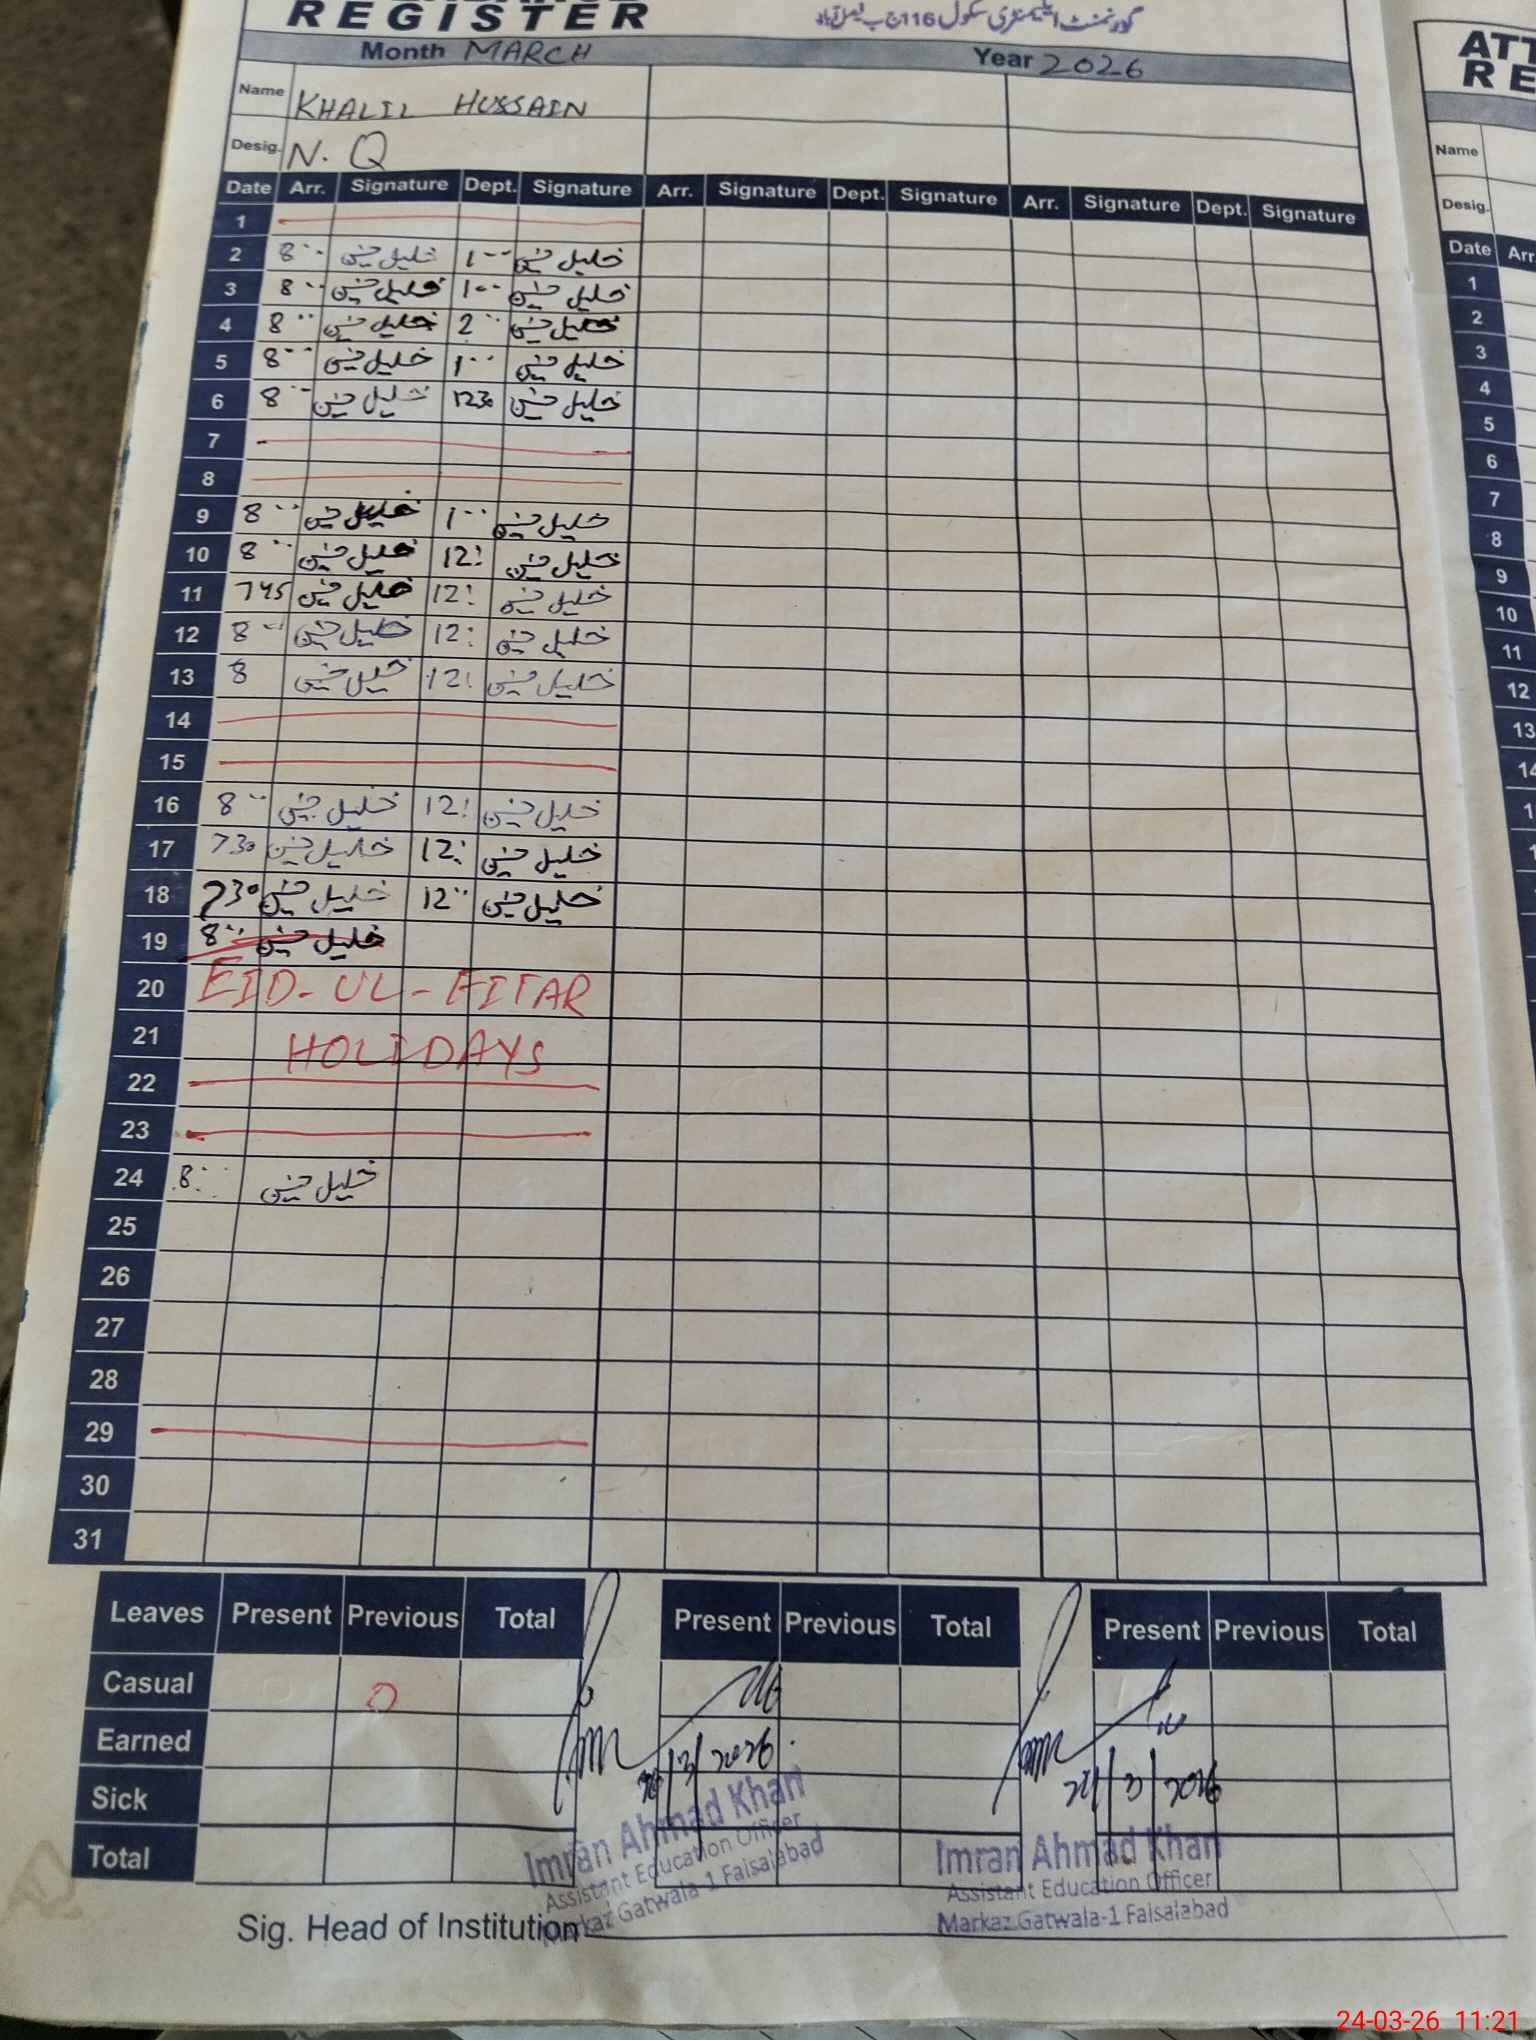 REGISTER
گورنمنٹ ایلیمنٹری سکول 116 ج ب فیصل آباد
Month MARCH Year 2026
Name KHALIL HUSSAIN
Desig. N. Q
Date Arr. Signature Dept. Signature Arr. Signature Dept. Signature Arr. Signature Dept. Signature
1
2 8·· خلیل حسین 1·· خلیل حسین
3 8·· خلیل حسین 1·· خلیل حسین
4 8·· خلیل حسین 2·· خلیل حسین
5 8·· خلیل حسین 1·· خلیل حسین
6 8·· خلیل حسین 1230 خلیل حسین
7
8
9 8·· خلیل حسین 1·· خلیل حسین
10 8·· خلیل حسین 12: خلیل حسین
11 745 خلیل حسین 12: خلیل حسین
12 8·· خلیل حسین 12: خلیل حسین
13 8 خلیل حسین 12: خلیل حسین
14
15
16 8·· خلیل حسین 12: خلیل حسین
17 730 خلیل حسین 12: خلیل حسین
18 730 خلیل حسین 12·· خلیل حسین
19 8·· خلیل حسین
20 EID-UL-FITAR
21 HOLIDAYS
22
23
24 8:·· خلیل حسین
25
26
27
28
29
30
31
Leaves Present Previous Total Present Previous Total Present Previous Total
Casual 0
Earned
Sick
Total
/3/2026
Imran Ahmad Khan
Assistant Education Officer
Markaz Gatwala-1 Faisalabad
/3/2026
Imran Ahmad Khan
Assistant Education Officer
Markaz Gatwala-1 Faisalabad
Sig. Head of Institution
ATT
RE
Name
Desig.
Date Arr
1
2
3
4
5
6
7
8
9
10
11
12
13
14
1
1
24-03-26 11:21